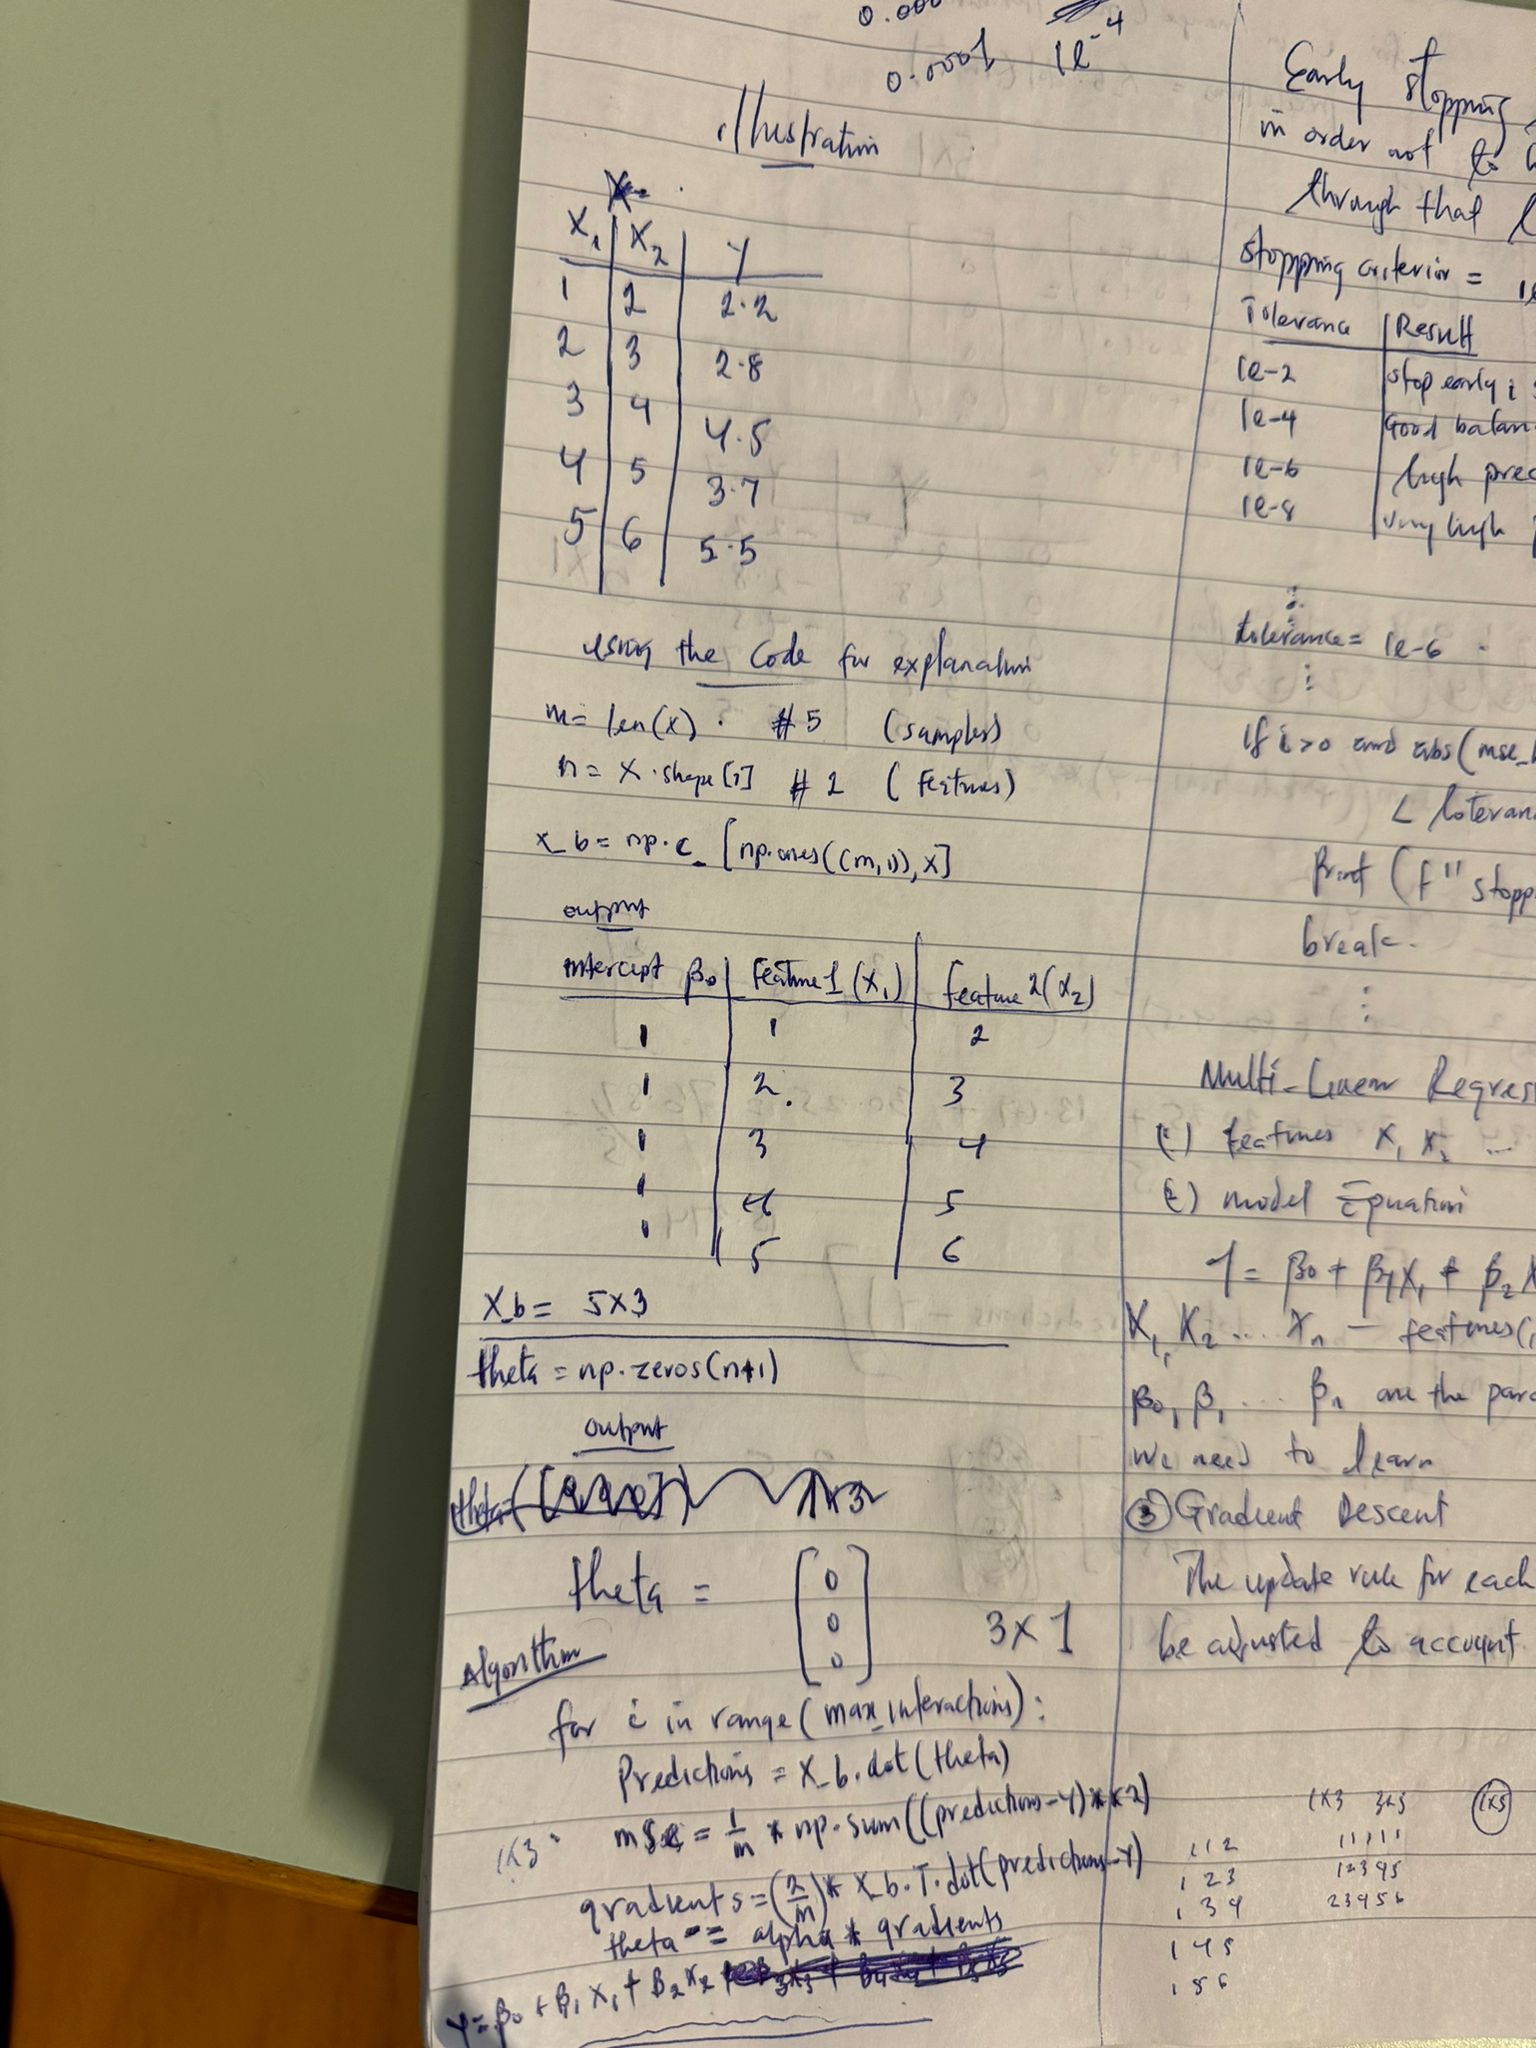 0.0001 1e^-4
illustration
X₁ | X₂ | Y
1 | 2 | 2.2
2 | 3 | 2.8
3 | 4 | 4.5
4 | 5 | 3.7
5 | 6 | 5.5
using the code for explanation
m = len(x) . # 5 (samples)
n = X.shape[1] # 2 (features)
x_b = np.c_[np.ones((m,1)), x]
output
intercept β₀ | feature 1 (X₁) | feature 2 (X₂)
1 | 1 | 2
1 | 2. | 3
1 | 3 | 4
1 | 4 | 5
1 | 5 | 6
X_b = 5x3
theta = np.zeros(n+1)
output
theta = [0
0
0] 3x1
Algorithm
for i in range(max_interactions):
Predictions = X_b.dot(theta)
1x3 mse = 1/m * np.sum((predictions-Y)**2)
gradients = (2/m)* X_b.T.dot(predictions-Y)
theta -= alpha * gradients
Y = β₀ + β₁X₁ + β₂X₂
Early stopping
in order not to
through that
stoppping criterior =
Tolerance | Result
1e-2 | stop early;
1e-4 | Good
1e-6 | high
1e-8 | very high
tolerance = 1e-6
if i>0 and abs(
<
Print (f"
break.
Multi-Linear
(1) features X₁ X₂ ...
(2) model Equation
Y = β₀ + β₁X₁ + β₂
X₁, X₂ ... Xn - features
β₀, β₁ ... βn are the
we need to learn
③ Gradient Descent
The update rule for each
be adjusted to account
1x3 3x5 1x5
1 1 2 1 1 1 1 1
1 2 3 1 2 3 4 5
1 3 4 2 3 4 5 6
1 4 5
1 5 6